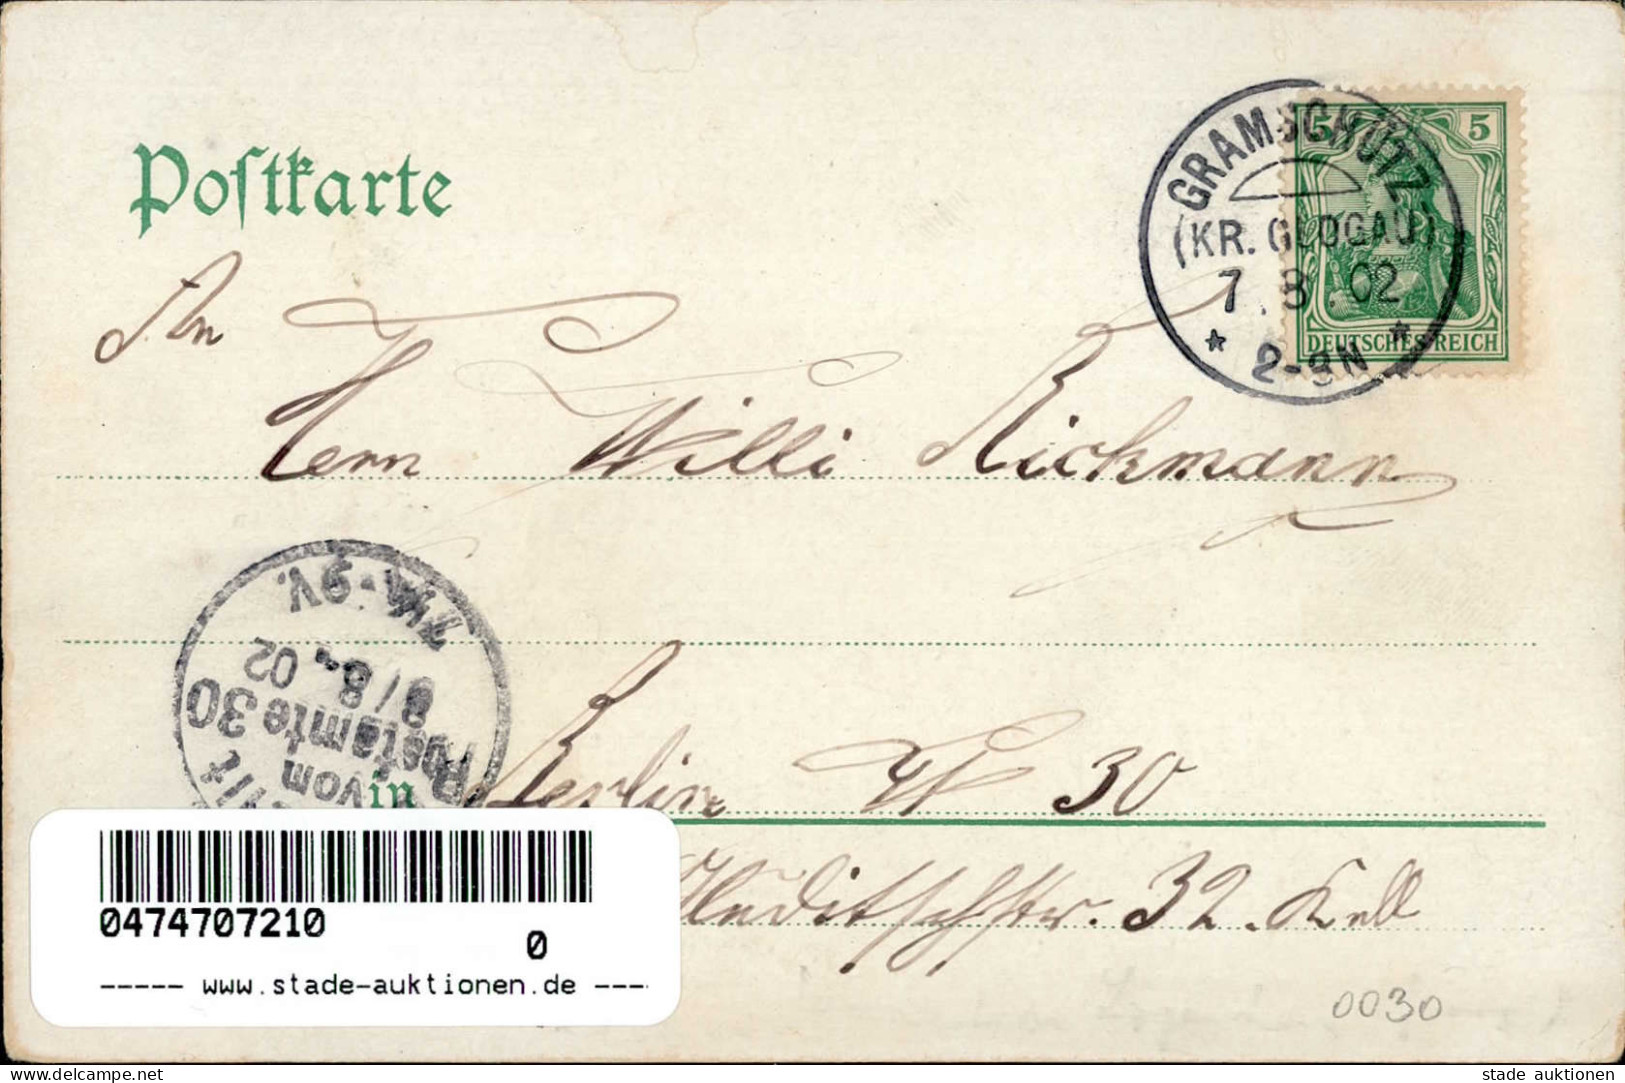 Postkarte
GRAMSCHÜTZ
(KR. GLOGAU)
7.8.02
* 2-3N *
5 5
DEUTSCHES REICH
An
Herrn Willi Rickmann
7¼-9V.
8/8.02
Postamte 30
vom
in Berlin W 30
str. 32. Kell
0474707210
0
----- www.stade-auktionen.de ----
0030
stade auktionen